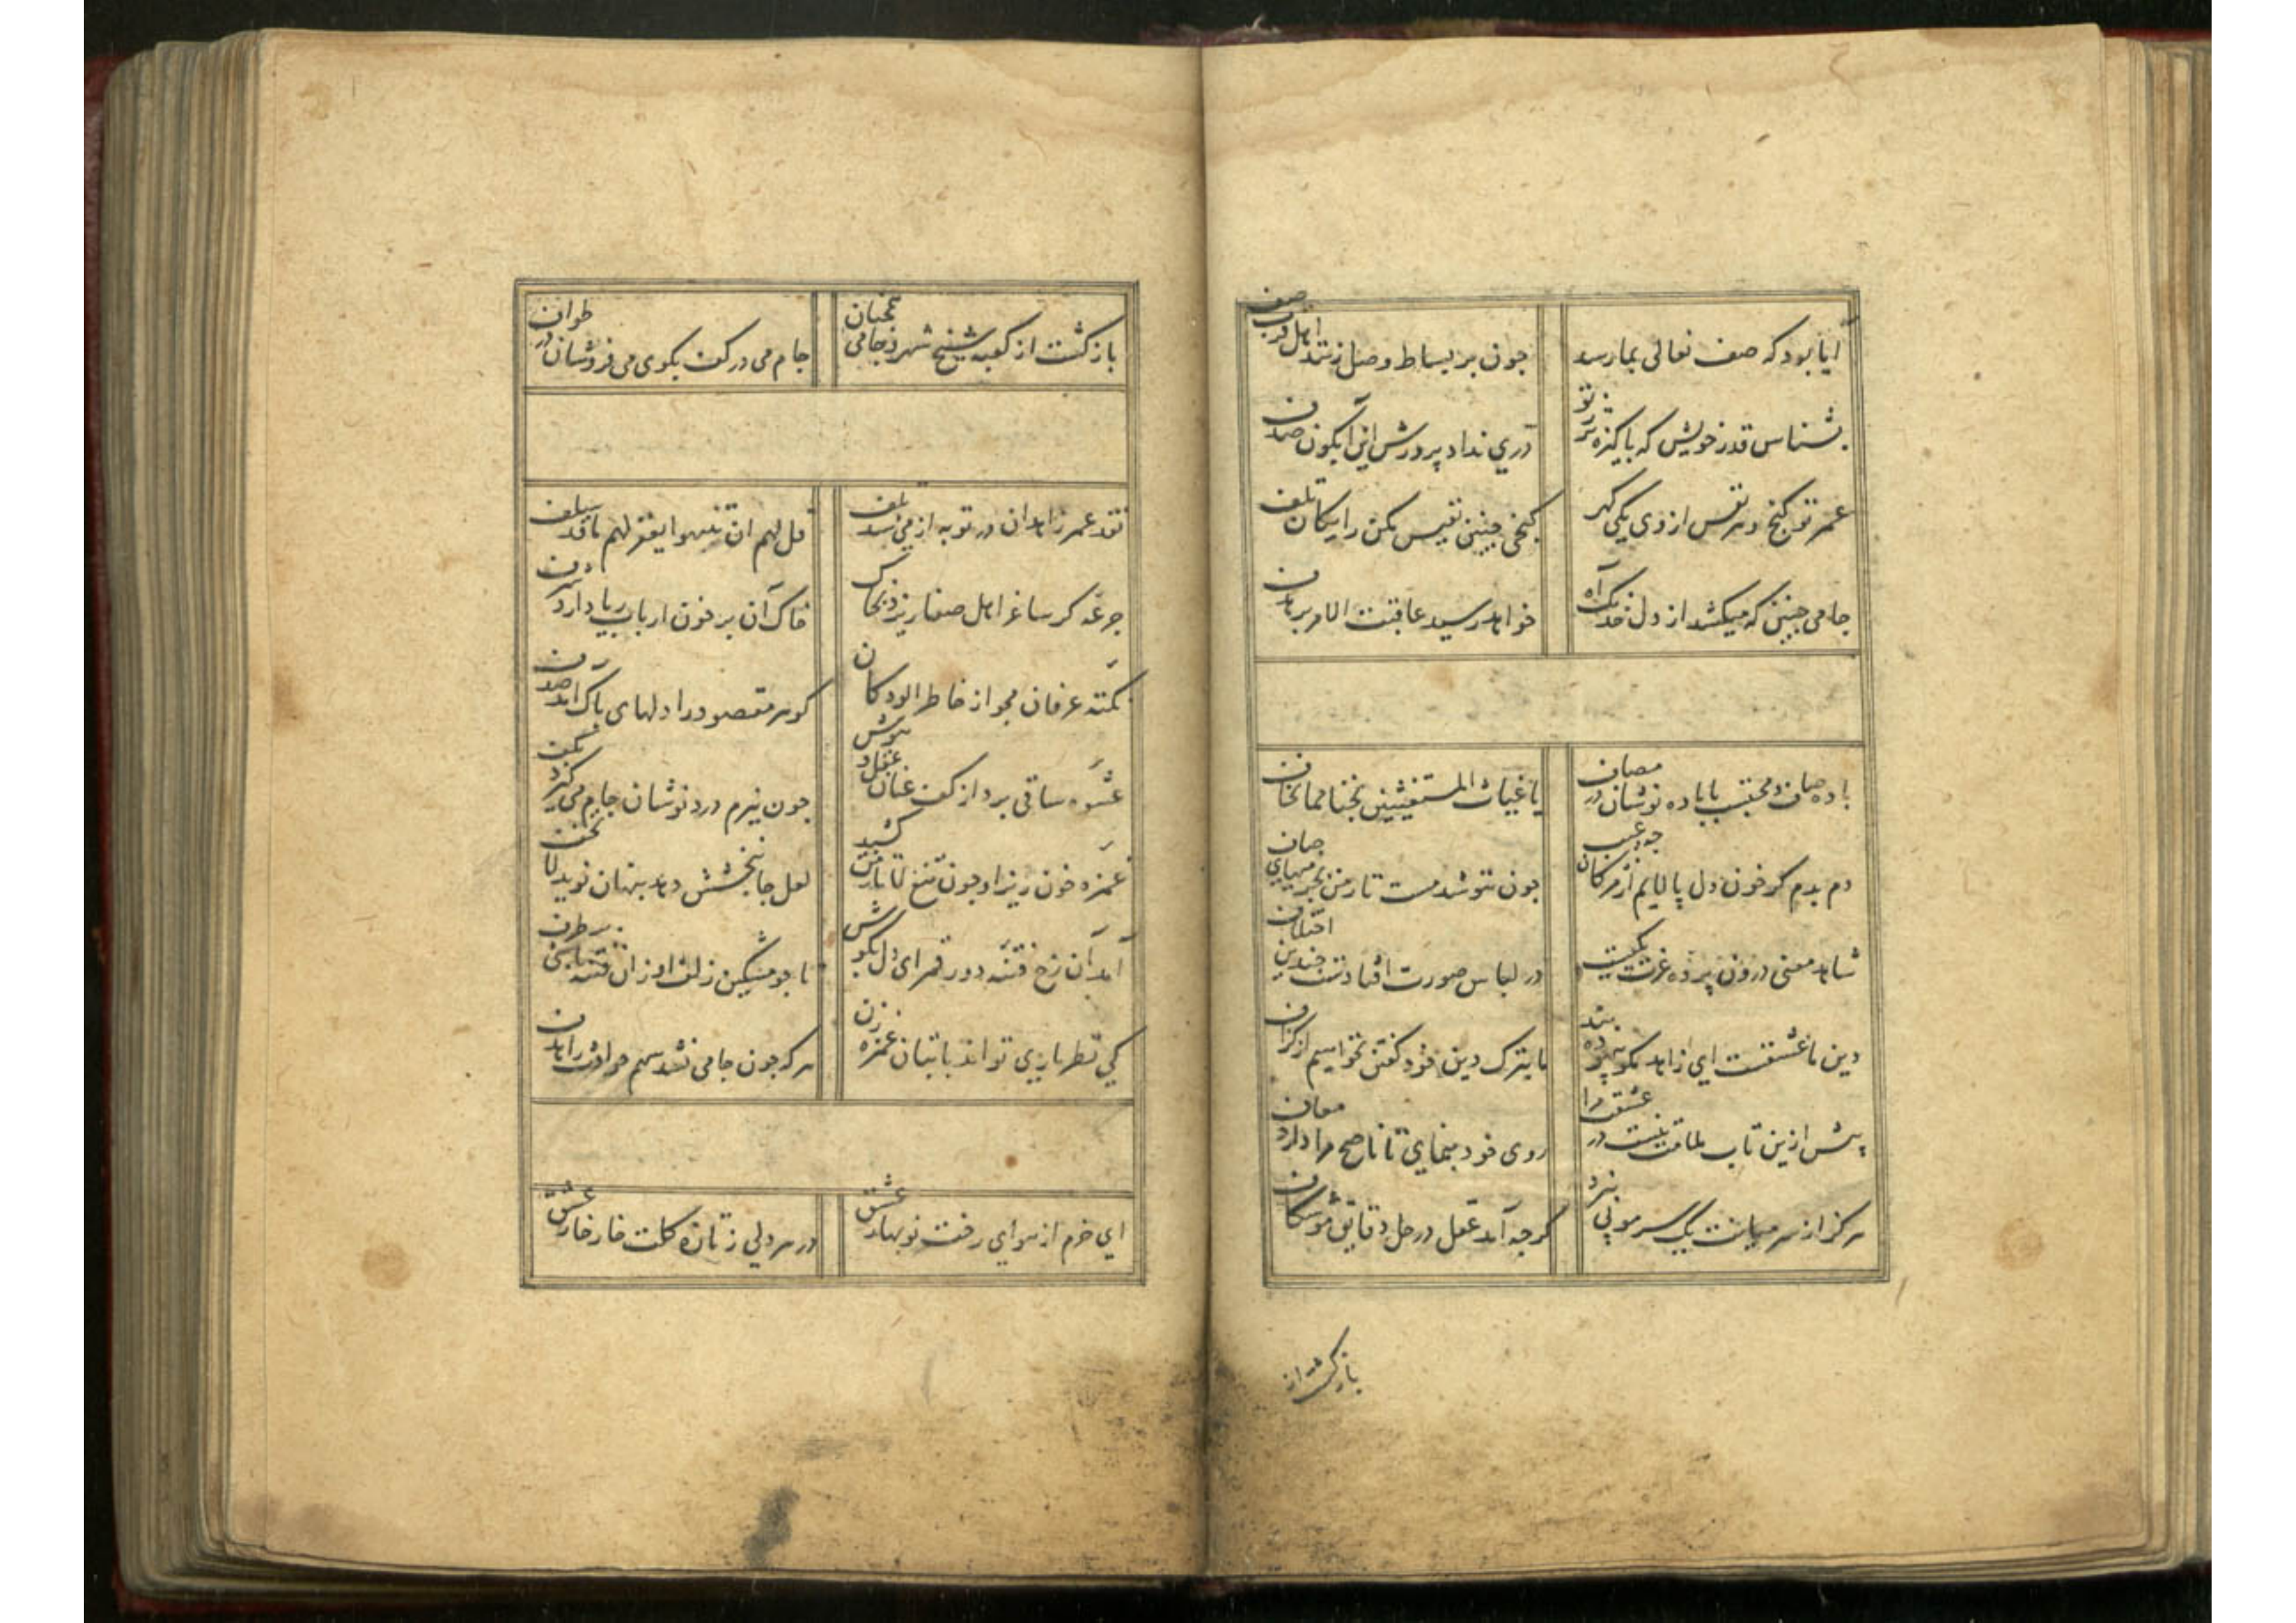 آیا بود که صف نعالی بما رسد
چون بر بساط وصل زنند اهل قرب صف
بشناس قدر خویش که پاکیزه‌تر ز تو
دری نداد پرورش این آبگون صدف
عمر تو گنج و هر نفس از وی یکی گهر
گنجی چنین نفیس مکن رایگان تلف
جامی چنین که میکشد از دل خدنگ آه
خواهد رسید عاقبت الامر بر هدف
باده صاف و محتسب با باده نوشان در مصاف
یا غیاث المستغیثین نجنا مما نخاف
دم بدم گر خون دل پالایم از مژگان چه عیب
چون ننوشد مست تا رمن بجز میهای صاف
شاهد معنی درون پرده عزت یکیست
در لباس صورت افتادست چندین اختلاف
دین ما عشقست ای زاهد مگو بیهوده پند
ما بترک دین خود گفتن نخواهیم از گزاف
بیش ازین تاب ملامت نیست در عشقت مرا
روی خود بنمای تا ناصح مرا دارد معاف
هرگز از سر میانت یک سر مو پی نبرد
گرچه آمد عقل در حل دقایق موشکاف
باز گشت از
باز گشت از کعبه شیخ شهر و جامی همچنان
جام می در کف بکوی می فروشان در طواف
نقد عمر زاهدان در توبه از می شد تلف
قل لهم ان ینتهوا یغفر لهم ما قد سلف
جرعه کز ساغر اهل صفا ریزد بخاک
خاک آن بر خون ارباب ریا دارد شرف
نکته عرفان مجو از خاطر آلودگان
گوهر مقصود را دلهای پاک آمد صدف
عشوه ساقی برد از کف عنان عقل و هوش
چون ببزم درد نوشان جام می گیرد بکف
غمزه خون ریز او چون تیغ لا تامن کشید
لعل جانبخشش دهد پنهان نوید لا تخف
آمد آن رخ فتنه دور قمر ای دل بکوش
تا چو مشکین زلف او زان فتنه باشی بر طرف
کی نظر بازی تواند با بتان غمزه زن
هر که چون جامی نشد سهم حوادث را هدف
ای خرم از هوای رخت نوبهار عشق
در هر دلی ز تازه گلت خار خار عشق